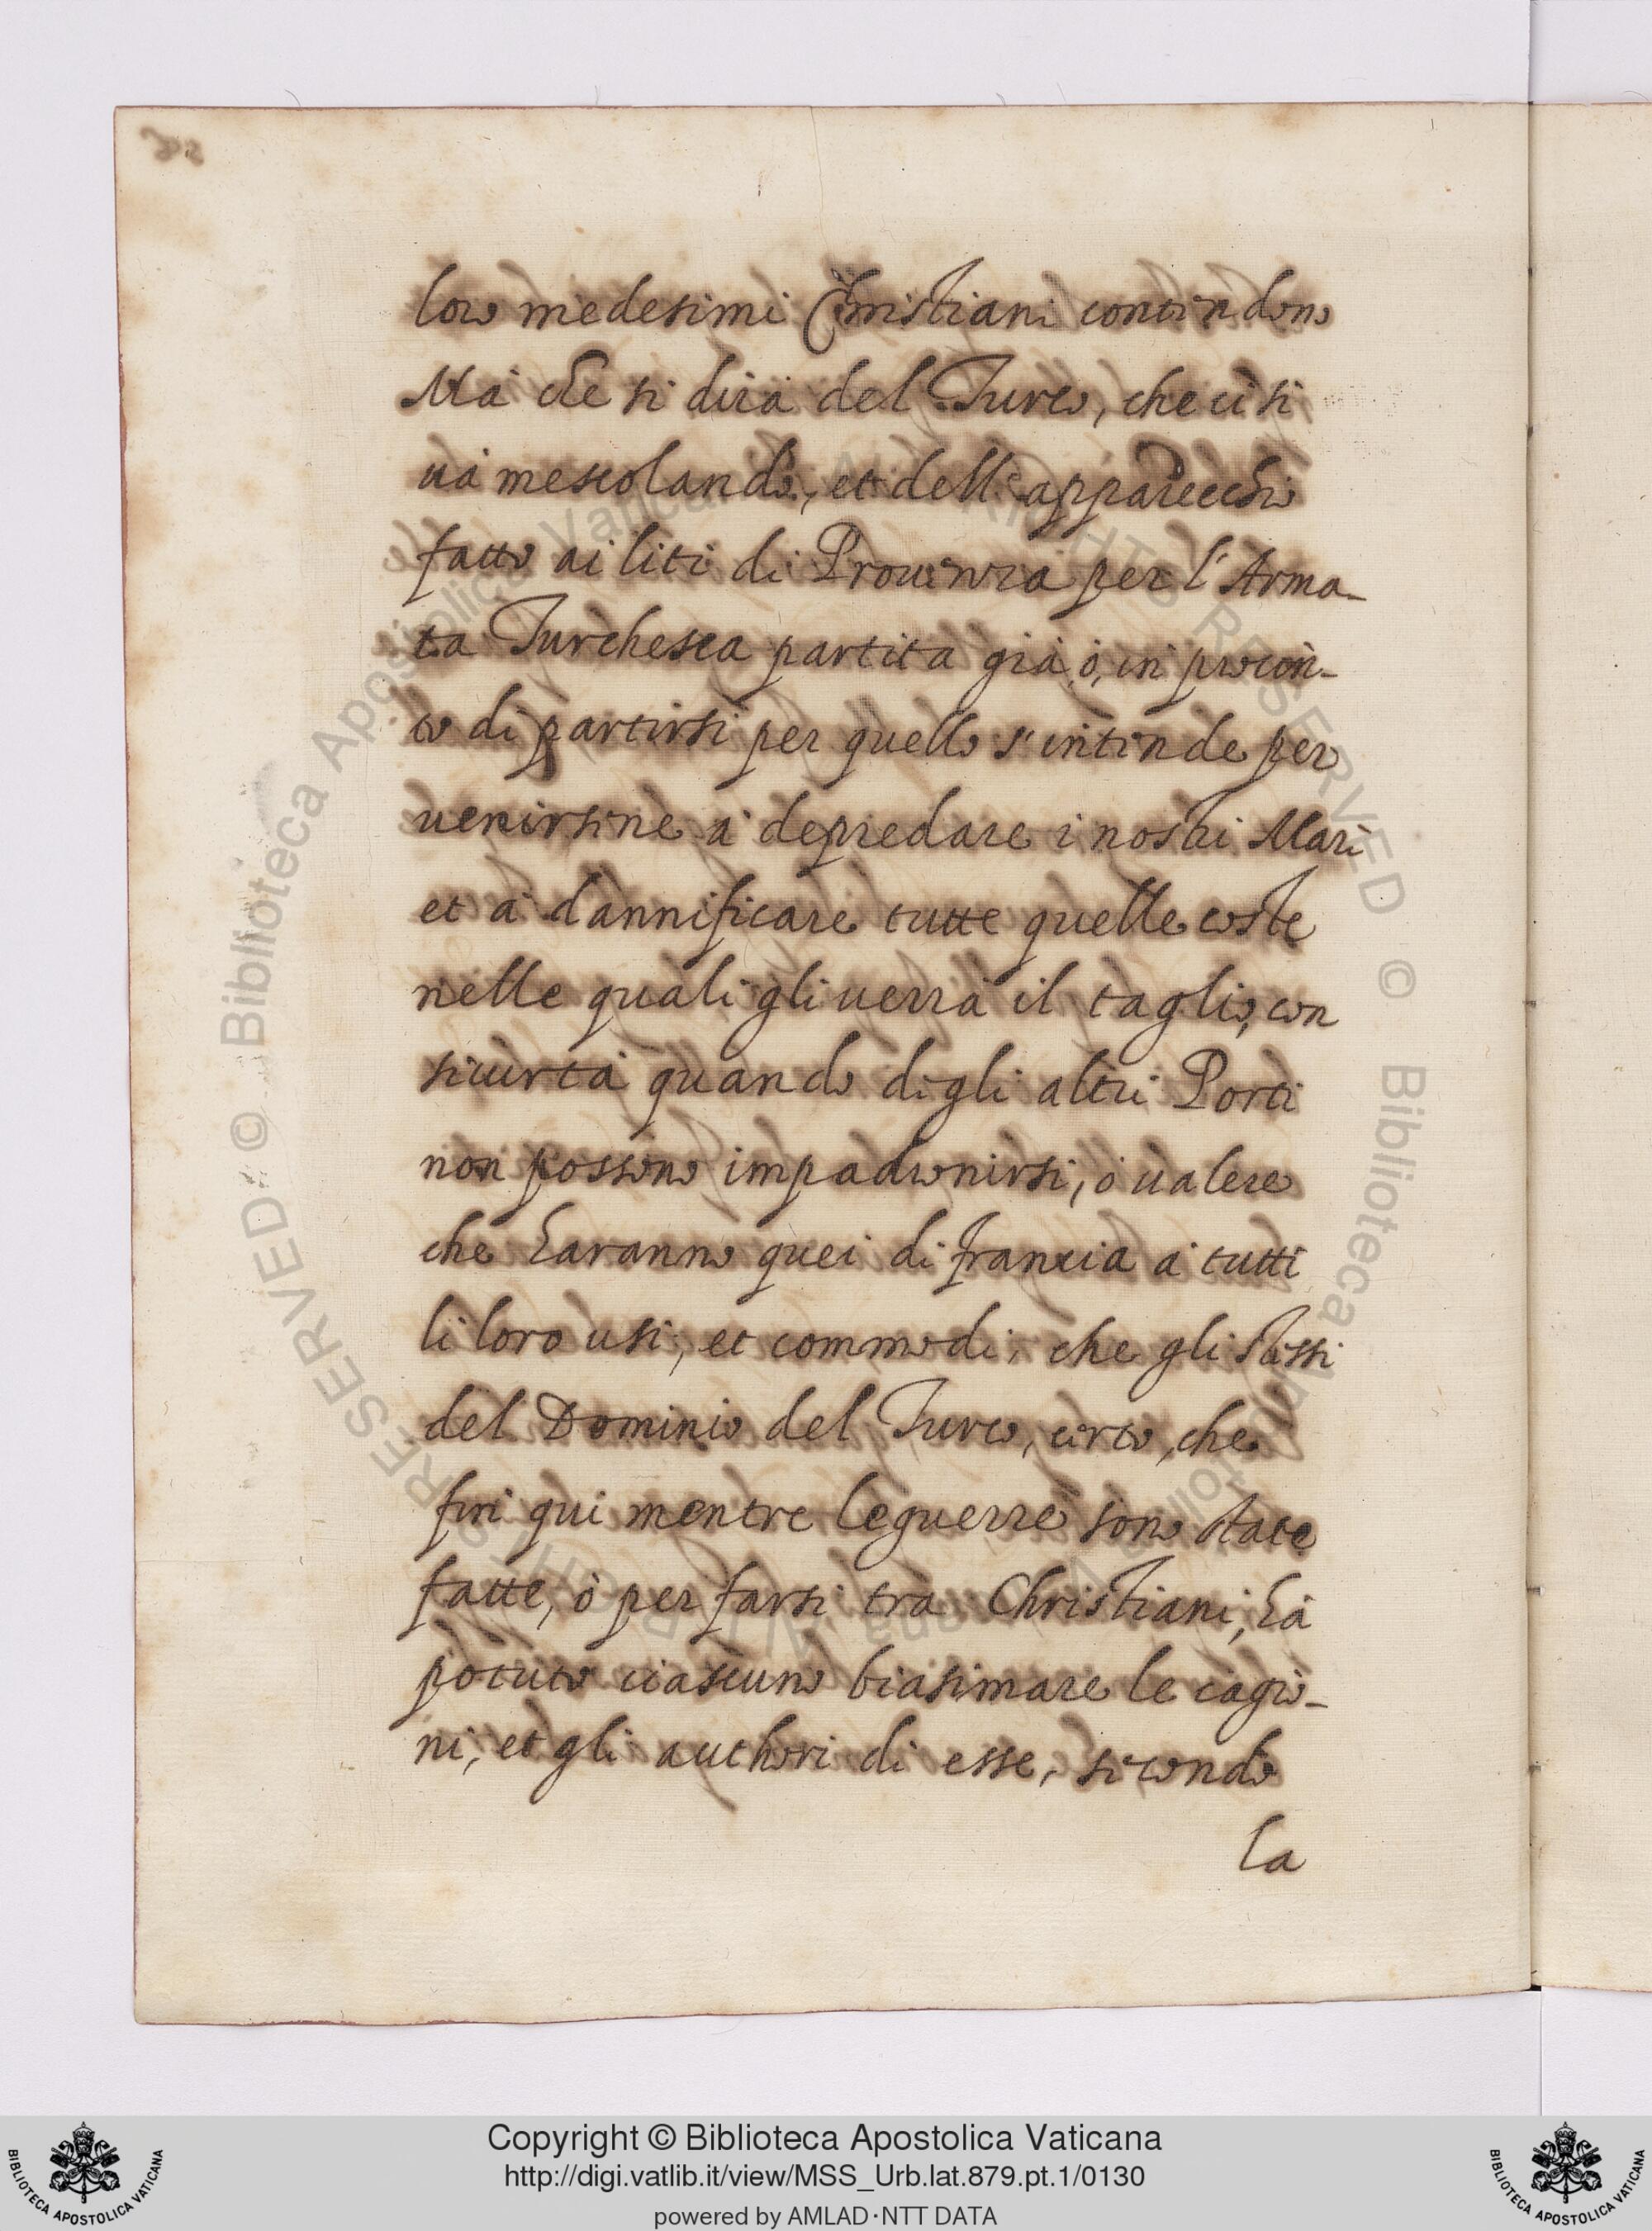 loro medesimi Christiani contendono
Mà che si dirà del Turco, che ci si
uà mescolando, et dell'apparecchio
fatto ai liti di Prouenza per l'Arma-
ta Turchesca partita già, ò, in procin-
to di partirsi per quello s'intende per
uenirsene à depredare i nostri Mari
et à dannificare tutte quelle coste
nelle quali gli uerrà il taglio, con
sicurtà quando degli altri Porti
non possono impadronirsi, ò ualere
che haranno quei di francia à tutti
li loro usi, et commodi, che gli stessi
del Dominio del Turco, certo, che
fin qui mentre le guerre sono state
fatte, ò per farsi trà Christiani, hà
potuto ciascuno biasimare le cagio-
ni, et gli authori di esse, secondo
la
© Biblioteca Apostolica Vaticana ALL RIGHTS RESERVED © Biblioteca Apostolica Vaticana ALL RIGHTS RESERVED
Copyright © Biblioteca Apostolica Vaticana
http://digi.vatlib.it/view/MSS_Urb.lat.879.pt.1/0130
powered by AMLAD·NTT DATA
BIBLIOTECA APOSTOLICA VATICANA
BIBLIOTECA APOSTOLICA VATICANA